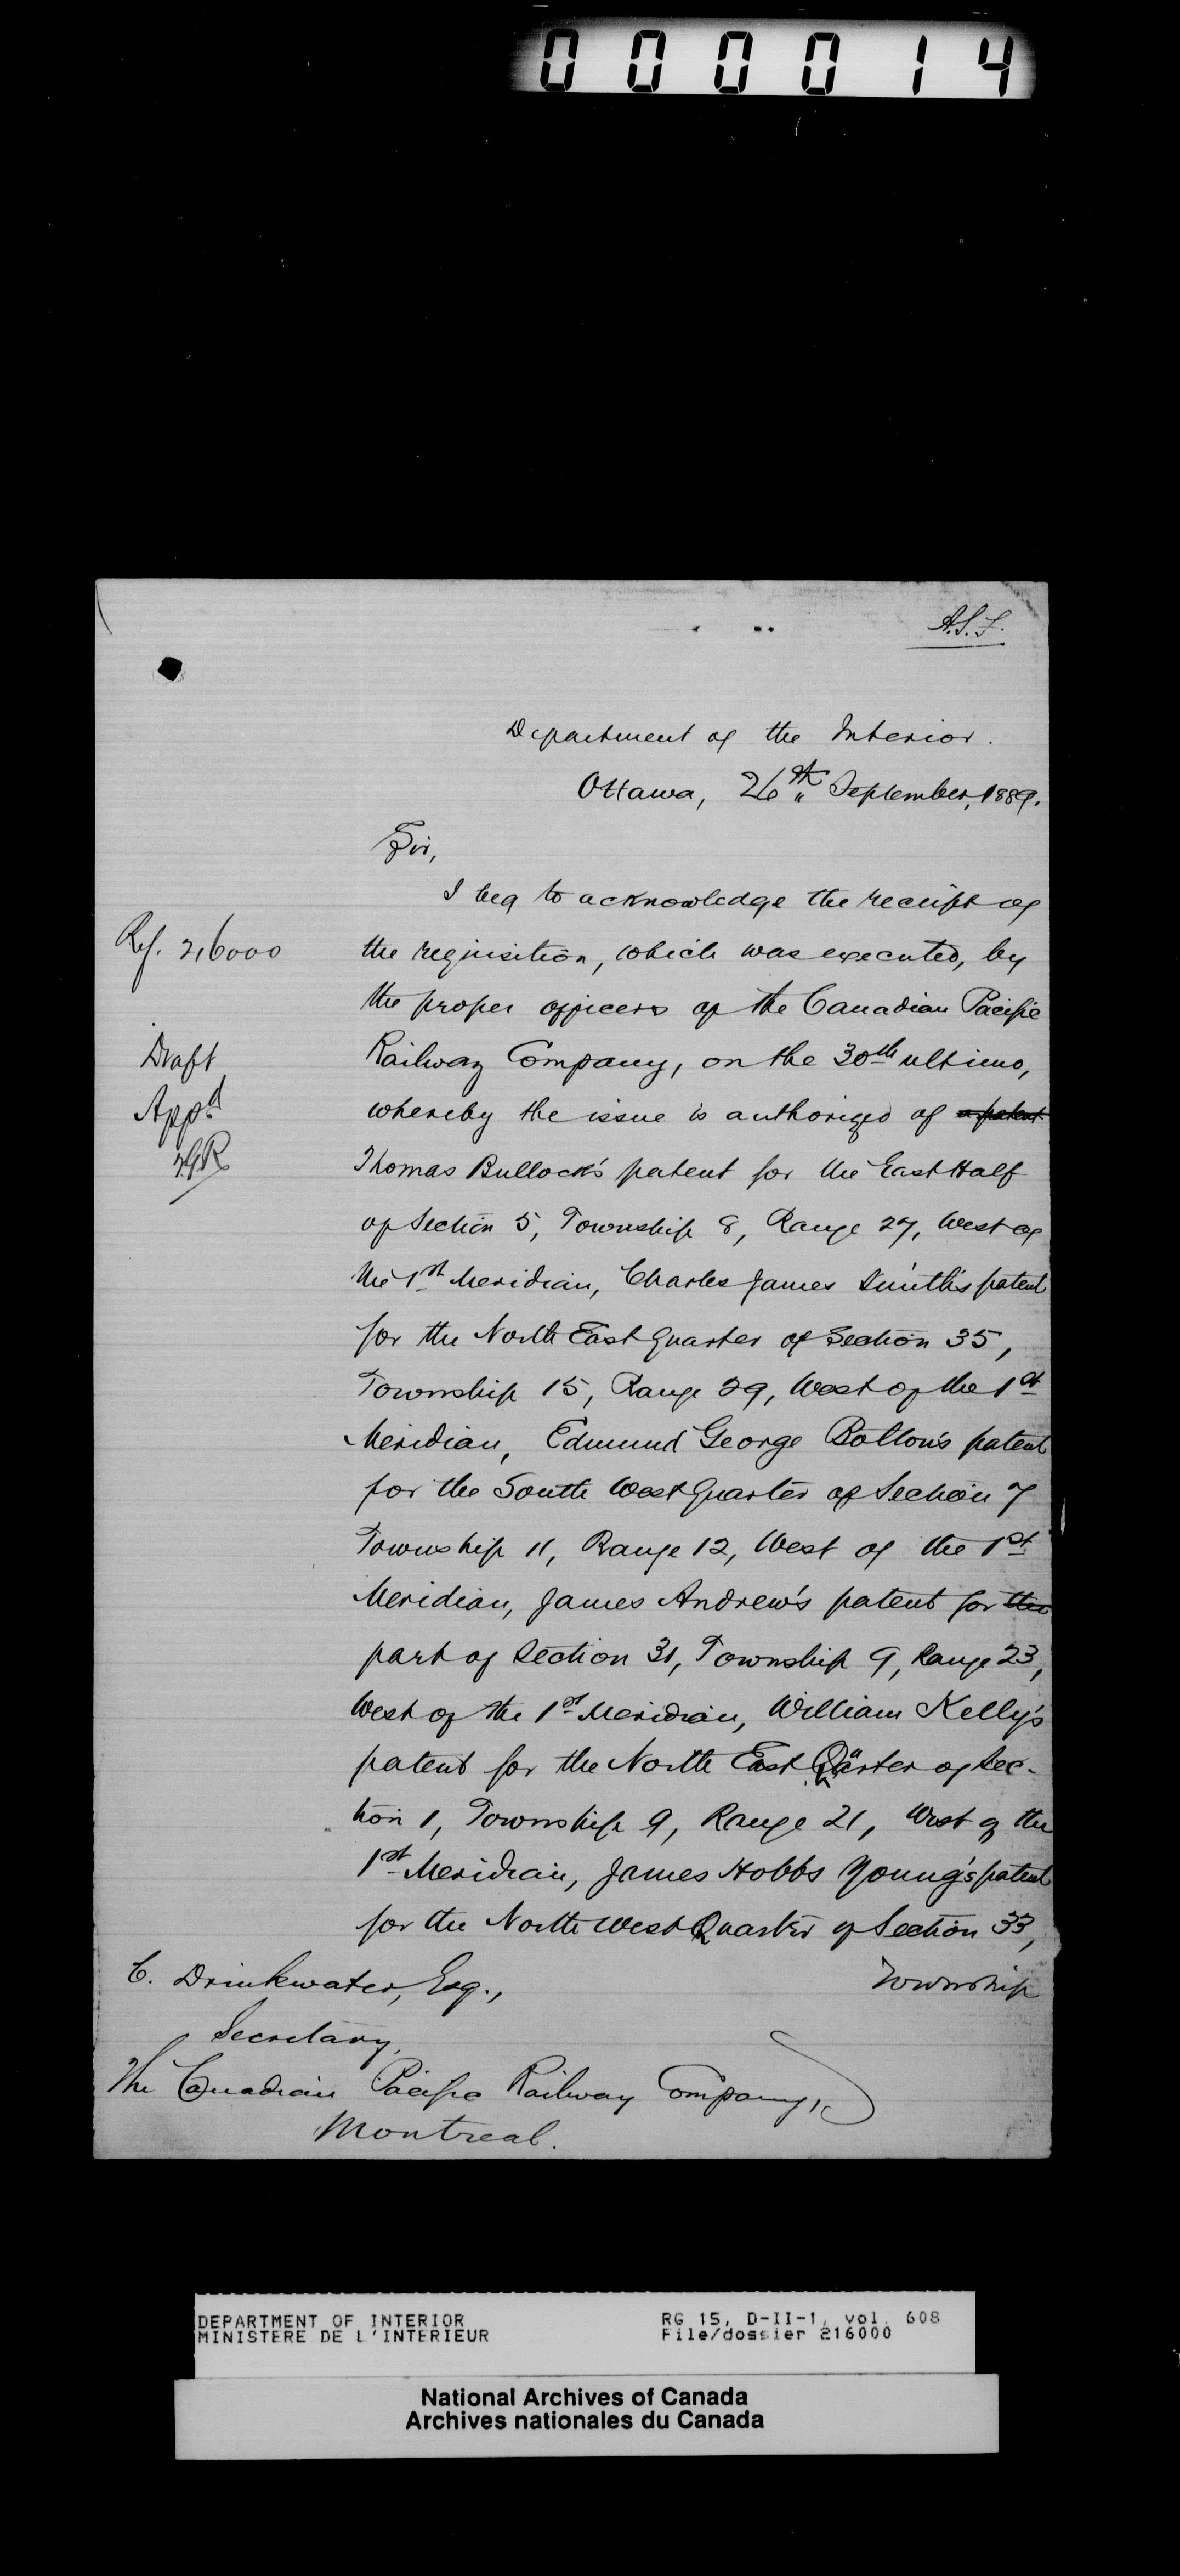 000014
A.S.F.
Department of the Interior.
Ottawa, 26th September, 1889.
Sir,
I beg to acknowledge the receipt of
Ref. 216000
the requisition, which was executed, by
the proper officers of the Canadian Pacific
Draft
Railway Company, on the 30th ultimo,
App'd
whereby the issue is authorized of a patent
Thomas Bullock's patent for the East Half
of Section 5, Township 8, Range 27, West of
the 1st Meridian, Charles James Smith's patent
for the North East Quarter of Section 35,
Township 15, Range 29, West of the 1st
Meridian, Edmund George Bolton's patent
for the South West Quarter of Section 7
Township 11, Range 12, West of the 1st
Meridian, James Andrew's patent for the
part of Section 31, Township 9, Range 23,
West of the 1st Meridian, William Kelly's
patent for the North East Quarter of Sec-
tion 1, Township 9, Range 21, West of the
1st Meridian, James Hobbs Young's patent
for the North West Quarter of Section 33,
Township
C. Drinkwater, Esq.,
Secretary,
The Canadian Pacific Railway Company,
Montreal.
DEPARTMENT OF INTERIOR
MINISTERE DE L'INTERIEUR
RG 15, D-II-1, vol. 608
File/dossier 216000
National Archives of Canada
Archives nationales du Canada